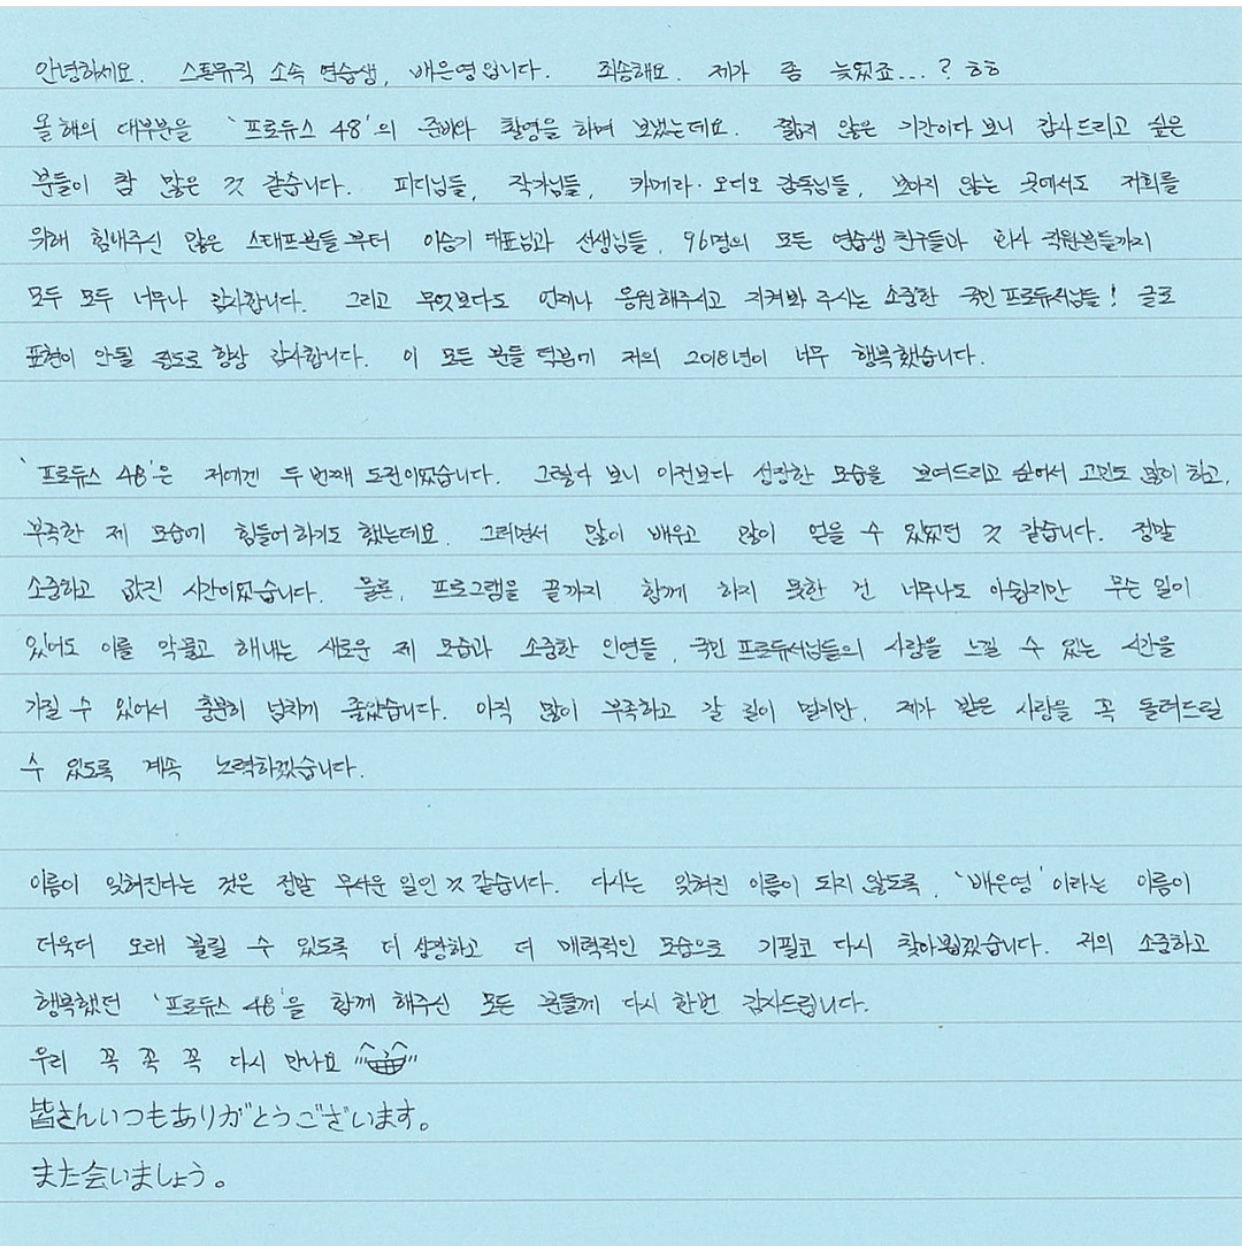 안녕하세요. 스톤뮤직 소속 연습생, 배은영입니다. 죄송해요. 제가 좀 늦었죠...? ㅎㅎ
올해의 대부분을 '프로듀스 48'의 준비와 촬영을 하며 보냈는데요. 짧지 않은 기간이다 보니 감사드리고 싶은
분들이 참 많은 것 같습니다. 피디님들, 작가님들, 카메라·오디오 감독님들, 보이지 않는 곳에서도 저희를
위해 힘내주신 많은 스태프분들부터 이승기 대표님과 선생님들, 96명의 모든 연습생 친구들과 회사 직원분들까지
모두 모두 너무나 감사합니다. 그리고 무엇보다도 언제나 응원해주시고 지켜봐 주시는 소중한 국민 프로듀서님들! 글로
표현이 안될 정도로 항상 감사합니다. 이 모든 분들 덕분에 저의 2018년이 너무 행복했습니다.
'프로듀스 48'은 저에겐 두 번째 도전이었습니다. 그렇다 보니 이전보다 성장한 모습을 보여드리고 싶어서 고민도 많이 하고,
부족한 제 모습에 힘들어하기도 했는데요. 그러면서 많이 배우고 많이 얻을 수 있었던 것 같습니다. 정말
소중하고 값진 시간이었습니다. 물론, 프로그램을 끝까지 함께 하지 못한 건 너무나도 아쉽지만 무슨 일이
있어도 이를 악물고 해내는 새로운 제 모습과 소중한 인연들, 국민 프로듀서님들의 사랑을 느낄 수 있는 시간을
가질 수 있어서 충분히 넘치게 좋았습니다. 아직 많이 부족하고 갈 길이 멀지만, 제가 받은 사랑을 꼭 돌려드릴
수 있도록 계속 노력하겠습니다.
이름이 잊혀진다는 것은 정말 무서운 일인 것 같습니다. 다시는 잊혀진 이름이 되지 않도록, '배은영'이라는 이름이
더욱더 오래 불릴 수 있도록 더 성장하고 더 매력적인 모습으로 기필코 다시 찾아뵙겠습니다. 저의 소중하고
행복했던 '프로듀스 48'을 함께 해주신 모든 분들께 다시 한번 감사드립니다.
우리 꼭 꼭 꼭 다시 만나요
皆さんいつもありがとうございます。
また会いましょう。